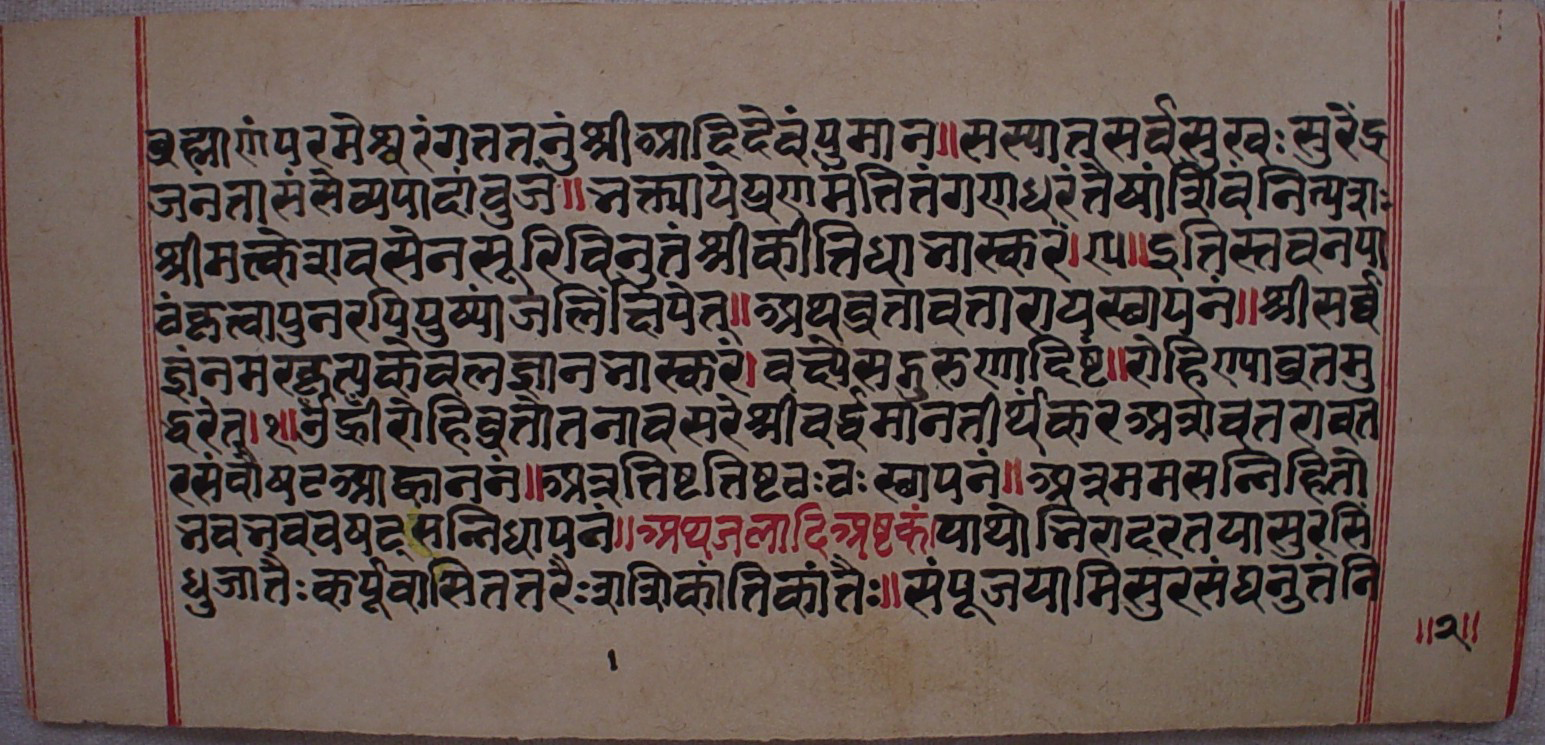 ब्रह्माणं परमेश्वरं गततनुं श्रीआदिदेवं पुमान्॥ सस्यात् सर्वसुखः सुरेंद्र
जनतासंसेव्यपादांबुजं॥ भक्त्याये प्रणमंति तं गणधरं तेषां शिवं नित्यशः
श्रीमत्केशवसेनसूरिविनुतं श्रीकीर्त्तिधाभास्करं।१५॥ इति स्तवनपा
वंकृत्वा पुनरपि पुष्पांजलिं क्षिपेत्॥ अथ व्रतावतारायस्थापनं॥ श्रीसर्व
ज्ञं नमस्कृत्य केवलज्ञानभास्करं। वक्ष्ये सद्गुरुणादिष्टं॥ रोहिण्या व्रतमु
द्धरेत्।१॥ ॐ ह्रीं रोहिव्रतोतनावसरे श्रीवर्द्धमानतीर्थंकर अत्रावतरावत
रसंवौषट आह्वाननं॥ अत्र तिष्ट तिष्ट वः वः स्थापनं॥ अत्र मम सन्निहितो
भव भव वषट् सन्निधापनं॥ अथ जलादि अष्टकं। पाथोभिरादरतया सुरसिं
धुजातैः कर्पूवासिततरैः शशिकांतिकांतैः॥ संपूजयामि सुरसंघनुतं नि
॥२॥